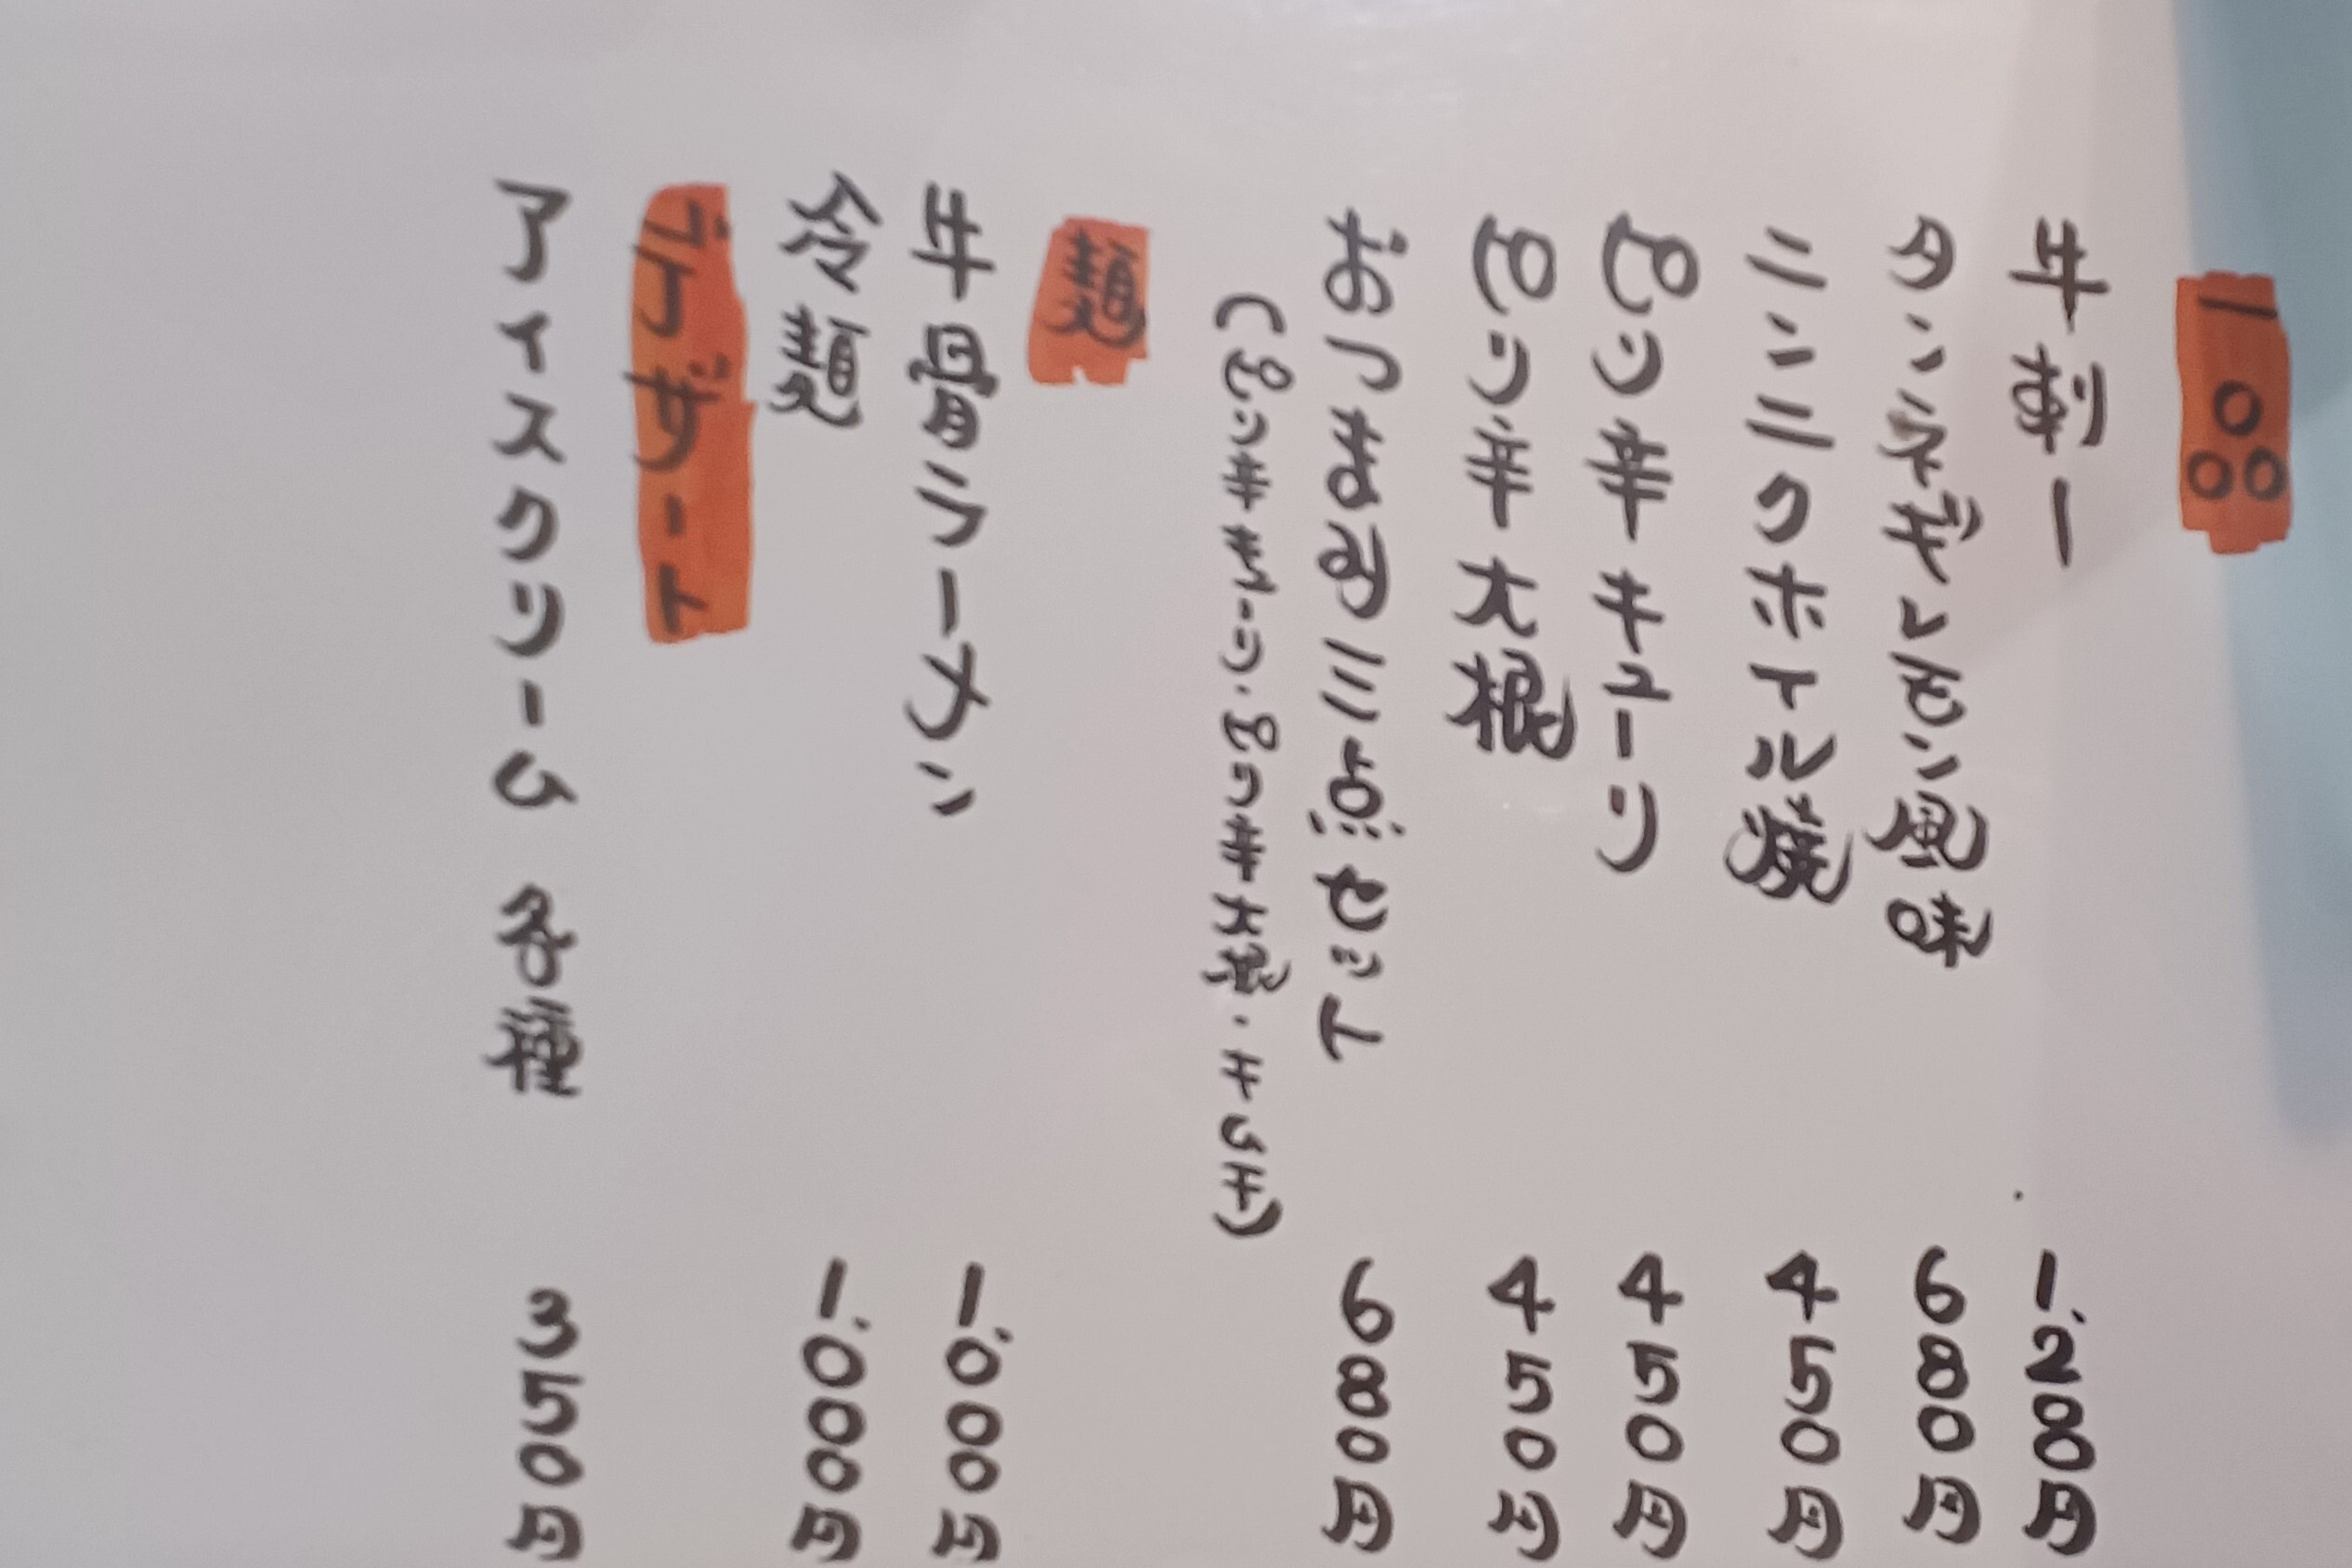 一品
牛 1.200円
風味 680円
ニンニクホイル焼 450円
ピリ辛キューリ 450円
ピリ辛大根 450円
おつまみ三点セット 680円
(ピリ辛キューリ・ピリ辛大根・キムチ)
麺
牛骨ラーメン 1.000円
冷麺 1.000円
デザート
アイスクリーム 各種 350円